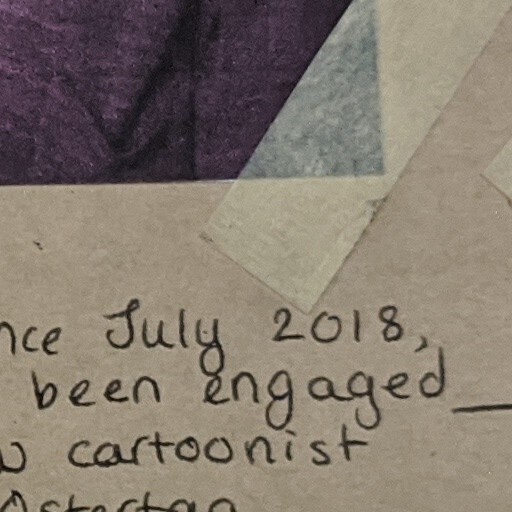 nce July 2018,
been engaged
cartoonist